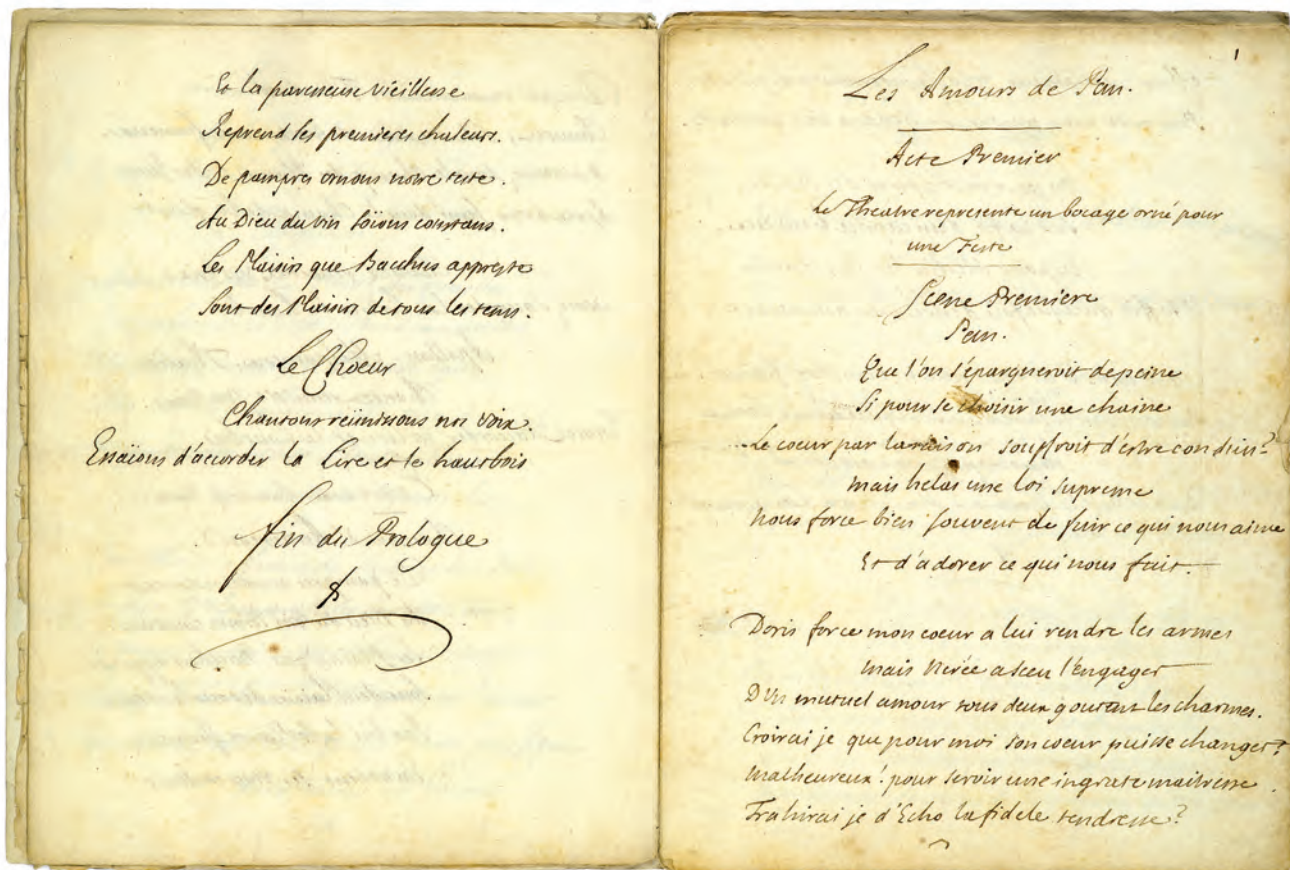 Et la paresseuse vieillesse
Reprend les premieres chaleurs.
De pampres ornons notre teste.
Au Dieu du vin soïons constans.
Les Plaisirs que Bacchus appreste
Sont des Plaisirs de tous les tems.
Le Choeur
Chantons reünissons nos voix.
Essaïons d'accorder la Lire et le hautbois
fin du Prologue
1
Les Amours de Pan.
Acte Premier
Le Theatre represente un bocage orné pour
une Feste
Scene Premiere
Pan.
Que l'on s'épargneroit de peine
Si pour se choisir une chaine
Le coeur par la raison souffroit d'estre conduit?
mais helas une loi supreme
nous force bien souvent de fuir ce qui nous aime
Et d'adorer ce qui nous fuit.
Doris force mon coeur a lui rendre les armes
mais Nirée a sceu l'engager
D'un mutuel amour tous deux goutent les charmes.
Croirai je que pour moi son coeur puisse changer?
malheureux! pour servir une ingrate maitresse
Trahirai je d'Echo la fidele tendresse?